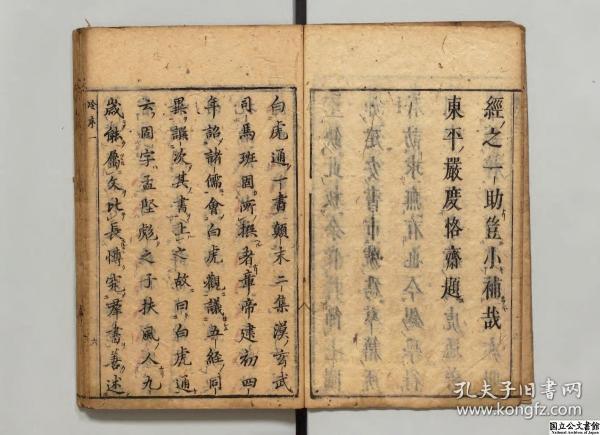 經之一助豈小補哉
東平嚴度恪齋題
白虎通一書顛末二集漢玄武
司馬班固所撰者章帝建初四
年詔諸儒會白虎觀議五經同
異誤次其書上之故曰白虎通
云固字孟堅彪之子扶風人九
歲能屬文比長博究羣書善述
序一
六
孔夫子旧书网
www.kongfz.com
国立公文書館
National Archives of Japan